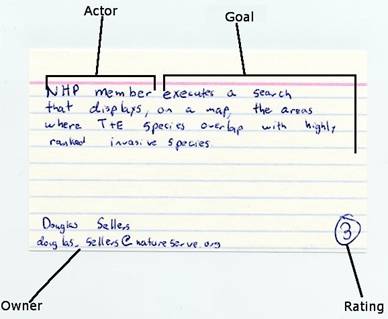 Actor
Goal
NHP member executes a search
that displays, on a map, the areas
where T+E species overlap with highly
ranked invasive species.
Douglas Sellers
douglas_sellers@natureserve.org
3
Owner
Rating